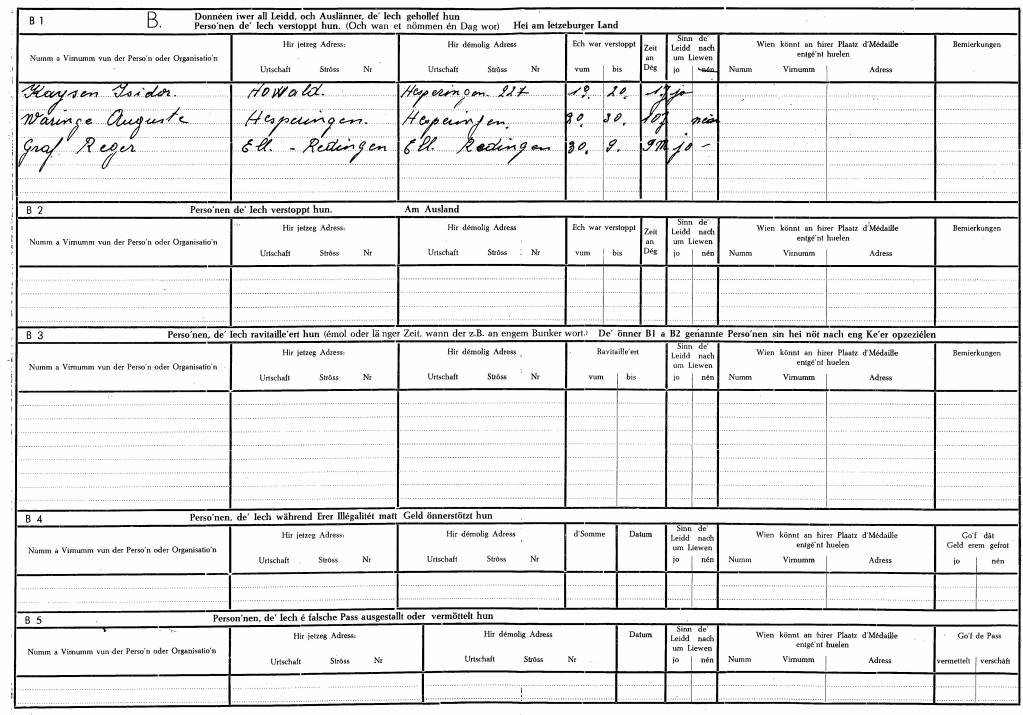 B 1 B. Donnéen iwer all Leidd, och Auslänner, de' Iech gehollef hun
Perso'nen de' Iech verstoppt hun. (Och wan et nömmen én Dag wor) Hei am letzeburger Land
Numm a Virnumm vun der Perso'n oder Organisatio'n Hir jetzeg Adress: Hir démolig Adress Ech war verstoppt Zeit an Dég Sinn de' Leidd nach um Liewen Wien könnt an hirer Plaatz d'Médaille entgé'nt huelen Bemierkungen
Urtschaft Ströss Nr Urtschaft Ströss Nr vum bis jo nén Numm Virnumm Adress
Kaysen Isidor. Howald. Hesperingen 227 19. 20. 1J jo
Waringe Auguste Hesperingen. Hesperingen. 20. 30. 10J nein
Graf Reger Ell. - Redingen Ell. Redingen 30. 9. 9M jo -
B 2 Perso'nen de' Iech verstoppt hun. Am Ausland
Numm a Virnumm vun der Perso'n oder Organisatio'n Hir jetzeg Adress: Hir démolig Adress Ech war verstoppt Zeit an Dég Sinn de' Leidd nach um Liewen Wien könnt an hirer Plaatz d'Médaille entgé'nt huelen Bemierkungen
Urtschaft Ströss Nr Urtschaft Ströss Nr vum bis jo nén Numm Virnumm Adress
B 3 Perso'nen, de' Iech ravitaille'ert hun (émol oder länger Zeit, wann der z.B. an engem Bunker wort.) De' önner B1 a B2 genannte Perso'nen sin hei nöt nach eng Ke'er opzeziélen
Numm a Virnumm vun der Perso'n oder Organisatio'n Hir jetzeg Adress: Hir démolig Adress Ravitaille'ert Sinn de' Leidd nach um Liewen Wien könnt an hirer Plaatz d'Médaille entgé'nt huelen Bemierkungen
Urtschaft Ströss Nr Urtschaft Ströss Nr vum bis jo nén Numm Virnumm Adress
B 4 Perso'nen, de' Iech während Erer Illégalitét matt Geld önnerstötzt hun
Numm a Virnumm vun der Perso'n oder Organisatio'n Hir jetzeg Adress: Hir démolig Adress d'Somme Datum Sinn de' Leidd nach um Liewen Wien könnt an hirer Plaatz d'Médaille entgé'nt huelen Go'f dât Geld erem gefrot
Urtschaft Ströss Nr Urtschaft Ströss Nr jo nén Numm Virnumm Adress jo nén
B 5 Person'nen, de' Iech é falsche Pass ausgestallt oder vermöttelt hun
Numm a Virnumm vun der Perso'n oder Organisatio'n Hir jetzeg Adress: Hir démolig Adress Datum Sinn de' Leidd nach um Liewen Wien könnt an hirer Plaatz d'Médaille entgé'nt huelen Go'f de Pass
Urtschaft Ströss Nr Urtschaft Ströss Nr jo nén Numm Virnumm Adress vermettelt verschâft